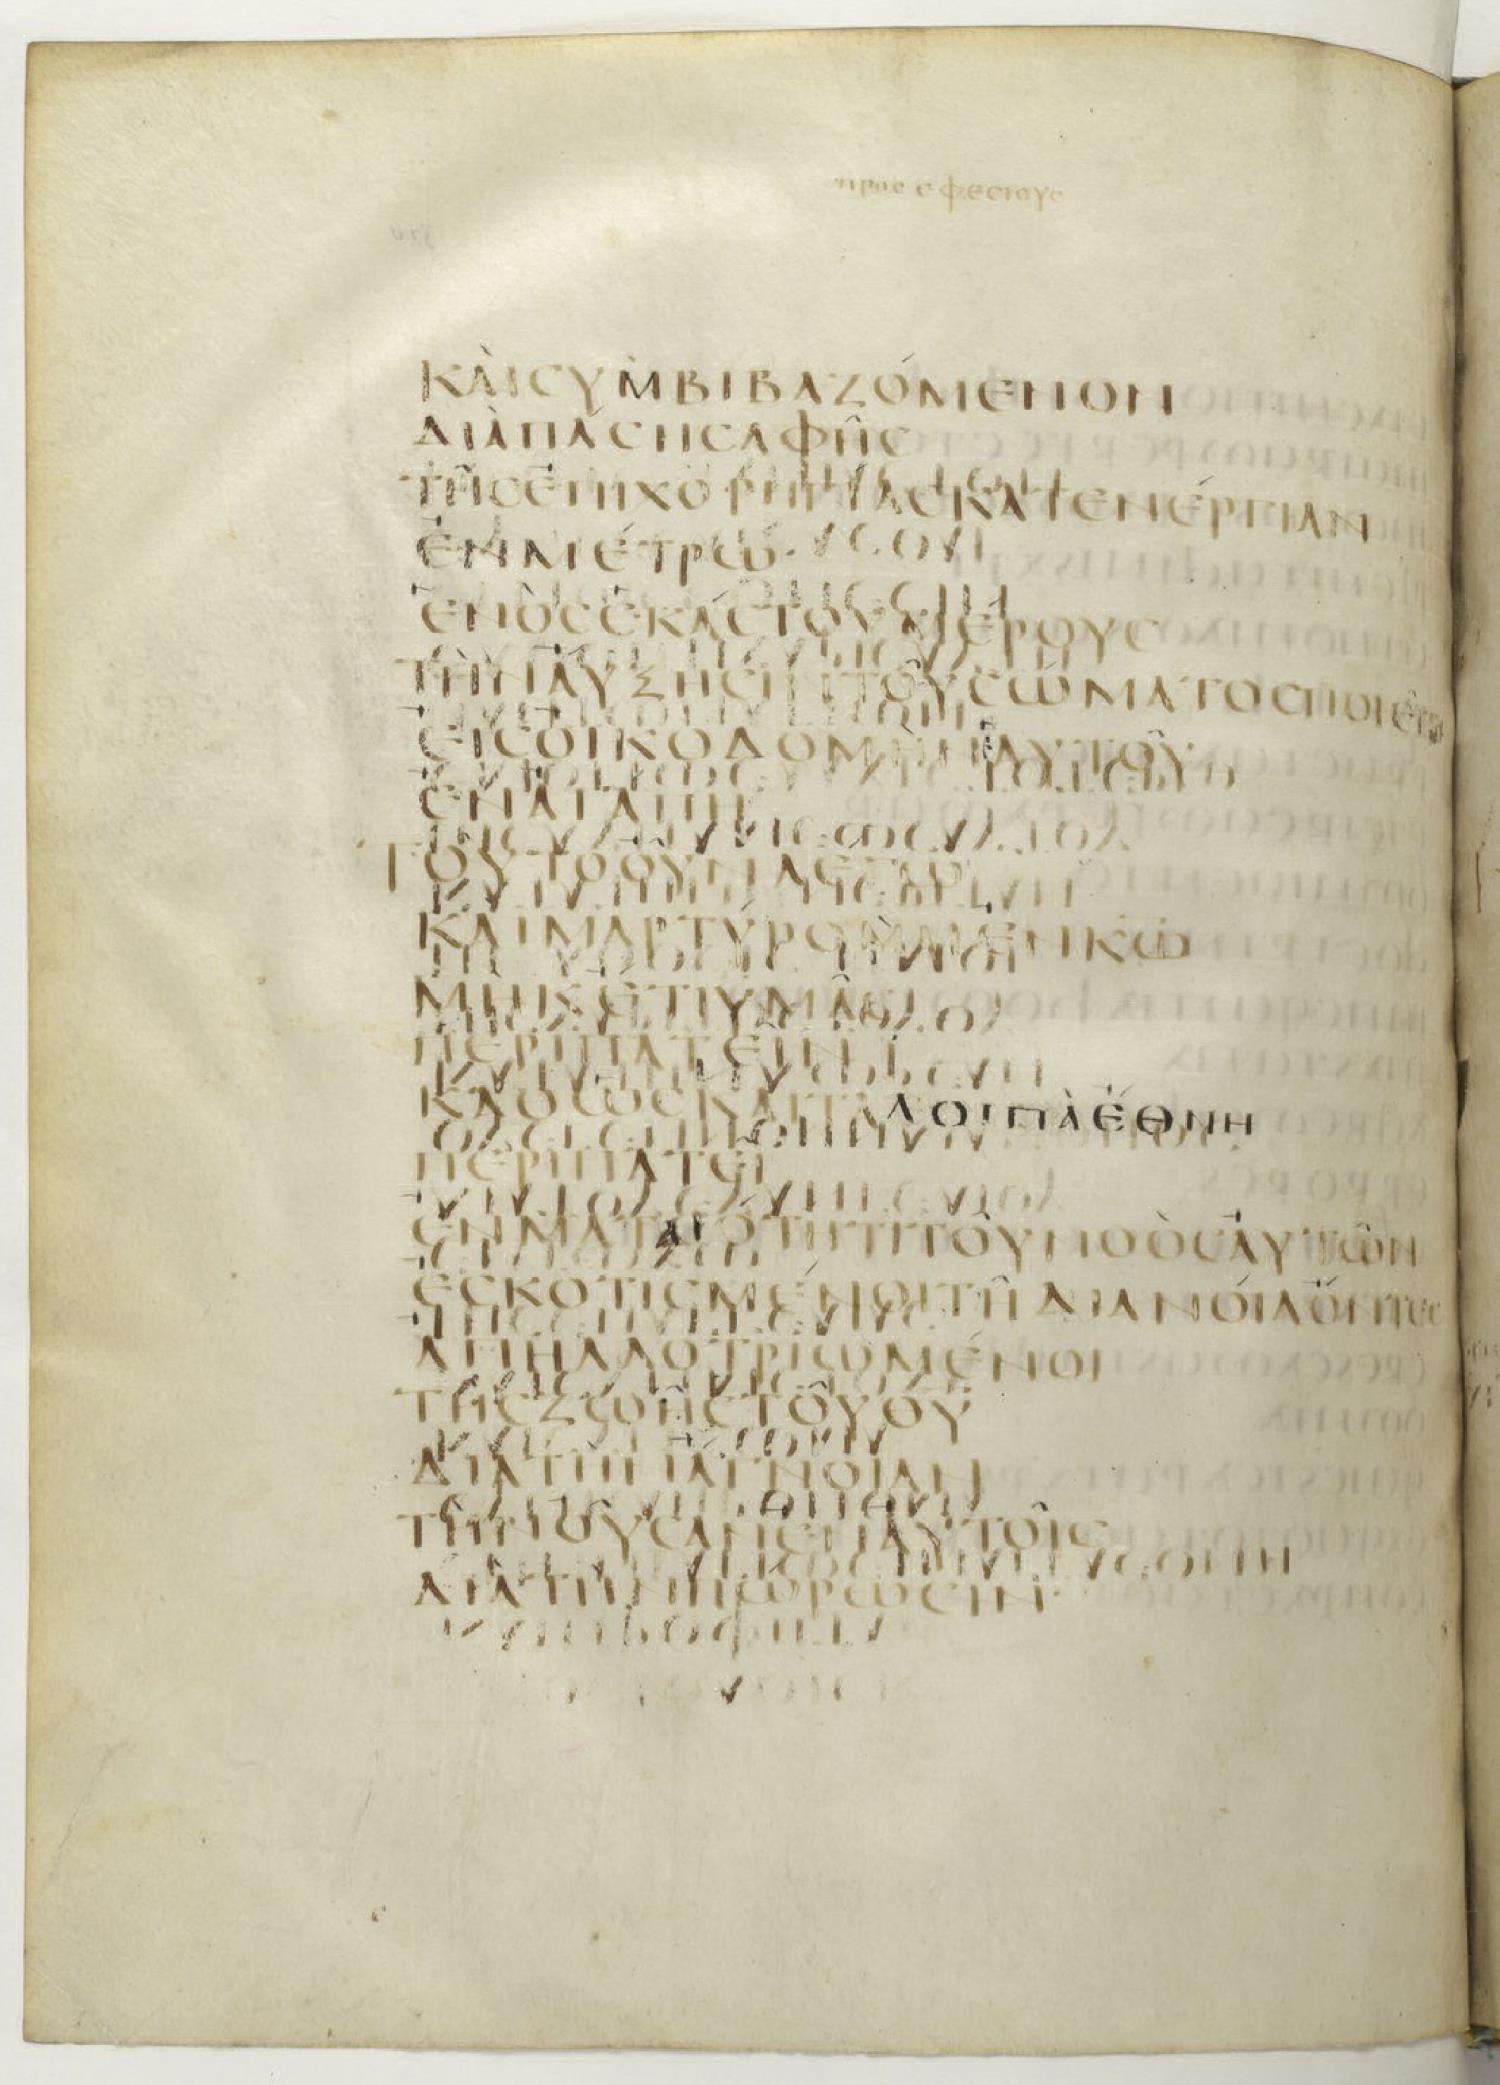 προς εφεσιους
ΚᾺΙϹΥΜ̀ΒΙΒΑΖΌΜΕΝΟΝ
ΔΙᾺΠΆϹΗϹΑΦΗ͂Ϲ
ΤΗ͂ϹἘΠΙΧΟΡΗΓΊΑϹΚΑΤΕΝΈΡΓΙΑΝ
ἘΝΜΈΤΡΩ
ΕΝῸϹἙΚΆϹΤΟΥΜΈΡΟΥϹ
ΤῊΝΑΥΞΗϹΙΝΤΟΥ͂ϹΏΜΑΤΟϹΠΟΙΕ͂ΙΤΑΙ
ΕΙϹΟΙΚΟΔΟΜῊΝἙΑΥΤΟΥ͂
ΕΝΑΓΆΠΗ
ΤΟΥΤΟΟΥΝΛΕΓΩ
ΚΑΙΜΑΡΤΎΡΟΜΑΙΕΝΚΩ
ΜῊΚΈΤΙΥΜΑ͂Ϲ
ΠΕΡΙΠΑΤΕΙΝ
ΚΑΘΩϹΚΑΙΤΑΛΟΙΠᾺἜΘΝΗ
ΠΕΡΙΠΑΤΕΙ
ΕΝΜΑΤΑΙΌΤΗΤΙΤΟΥΝΟῸϹἈΥΤΩ͂Ν
ΕϹΚΟΤΙϹΜΈΝΟΙΤΗ͂ΔΙΑΝΌΙΑὌΝΤΕϹ
ΑΠΗΛΛΟΤΡΙΩΜΈΝΟΙ
ΤΗ͂ϹΖΩΗ͂ϹΤΟΥ͂ΘΥ
ΔΙΑΤΗΝΑΓΝΟΙΑΝ
ΤΗΝΟΥϹΑΝΕΝΑΥΤΟΙ͂Ϲ
ΔΙΑΤΗΝΠΩΡΩϹΙΝ